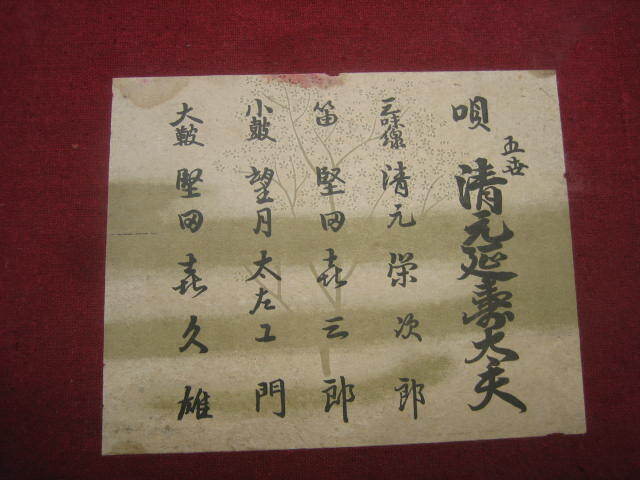 唄 五世 清元延寿太夫
三味線 清元栄次郎
笛 堅田喜三郎
小鼓 望月太左エ門
大鼓 堅田喜久雄